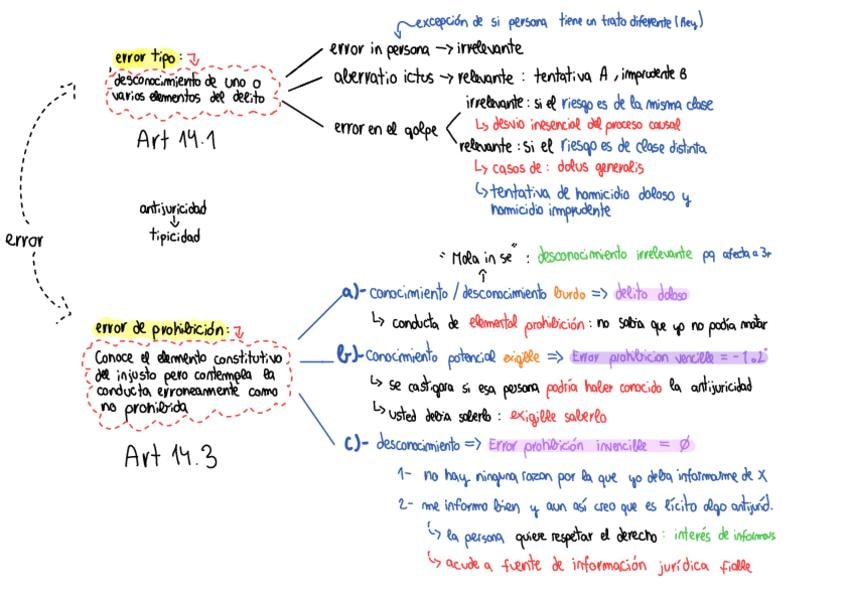 excepción de si persona tiene un trato diferente (Rey)
error tipo:
desconocimiento de uno o
varios elementos del delito
Art 14.1
error in persona → irrelevante
aberratio ictus → relevante : tentativa A, imprudente B
error en el golpe
irrelevante : si el riesgo es de la misma clase
↳ desvio inesencial del proceso causal
relevante : si el riesgo es de clase distinta
↳ casos de : dolus generalis
↳ tentativa de homicidio doloso y
homicidio imprudente
error
antijuricidad
↓
tipicidad
"Mala in se" : desconocimiento irrelevante pq afecta a 3r
error de prohibición:
Conoce el elemento constitutivo
del injusto pero contempla la
conducta erroneamente como
no prohibida
Art 14.3
a)- conocimiento / desconocimiento burdo => delito doloso
↳ conducta de elemental prohibición : no sabia que yo no podía matar
b)- conocimiento potencial exigible => Error prohibicion vencible = -1 o 2º
↳ se castigara si esa persona podría haber conocido la antijuricidad
↳ usted debia saberlo : exigible saberlo
c)- desconocimiento => Error prohibición invencible = Ø
1- no hay ninguna razon por la que yo deba informarme de X
2- me informo bien y aun así creo que es lícito algo antijurid.
↳ la persona quiere respetar el derecho : interés de informars
↳ acude a fuente de información jurídica fiable